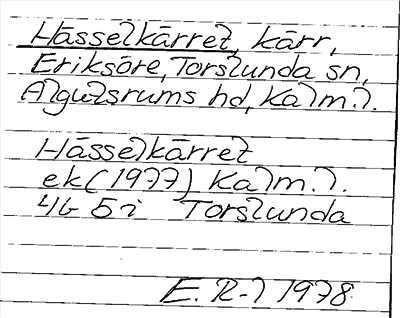 Hässelkärret, kärr,
Eriksöre, Torslunda sn,
Algutsrums hd, Kalm.l.
Hässelkärret
ek (1977) Kalm.l.
4G 5i Torslunda
E. R-l 1978